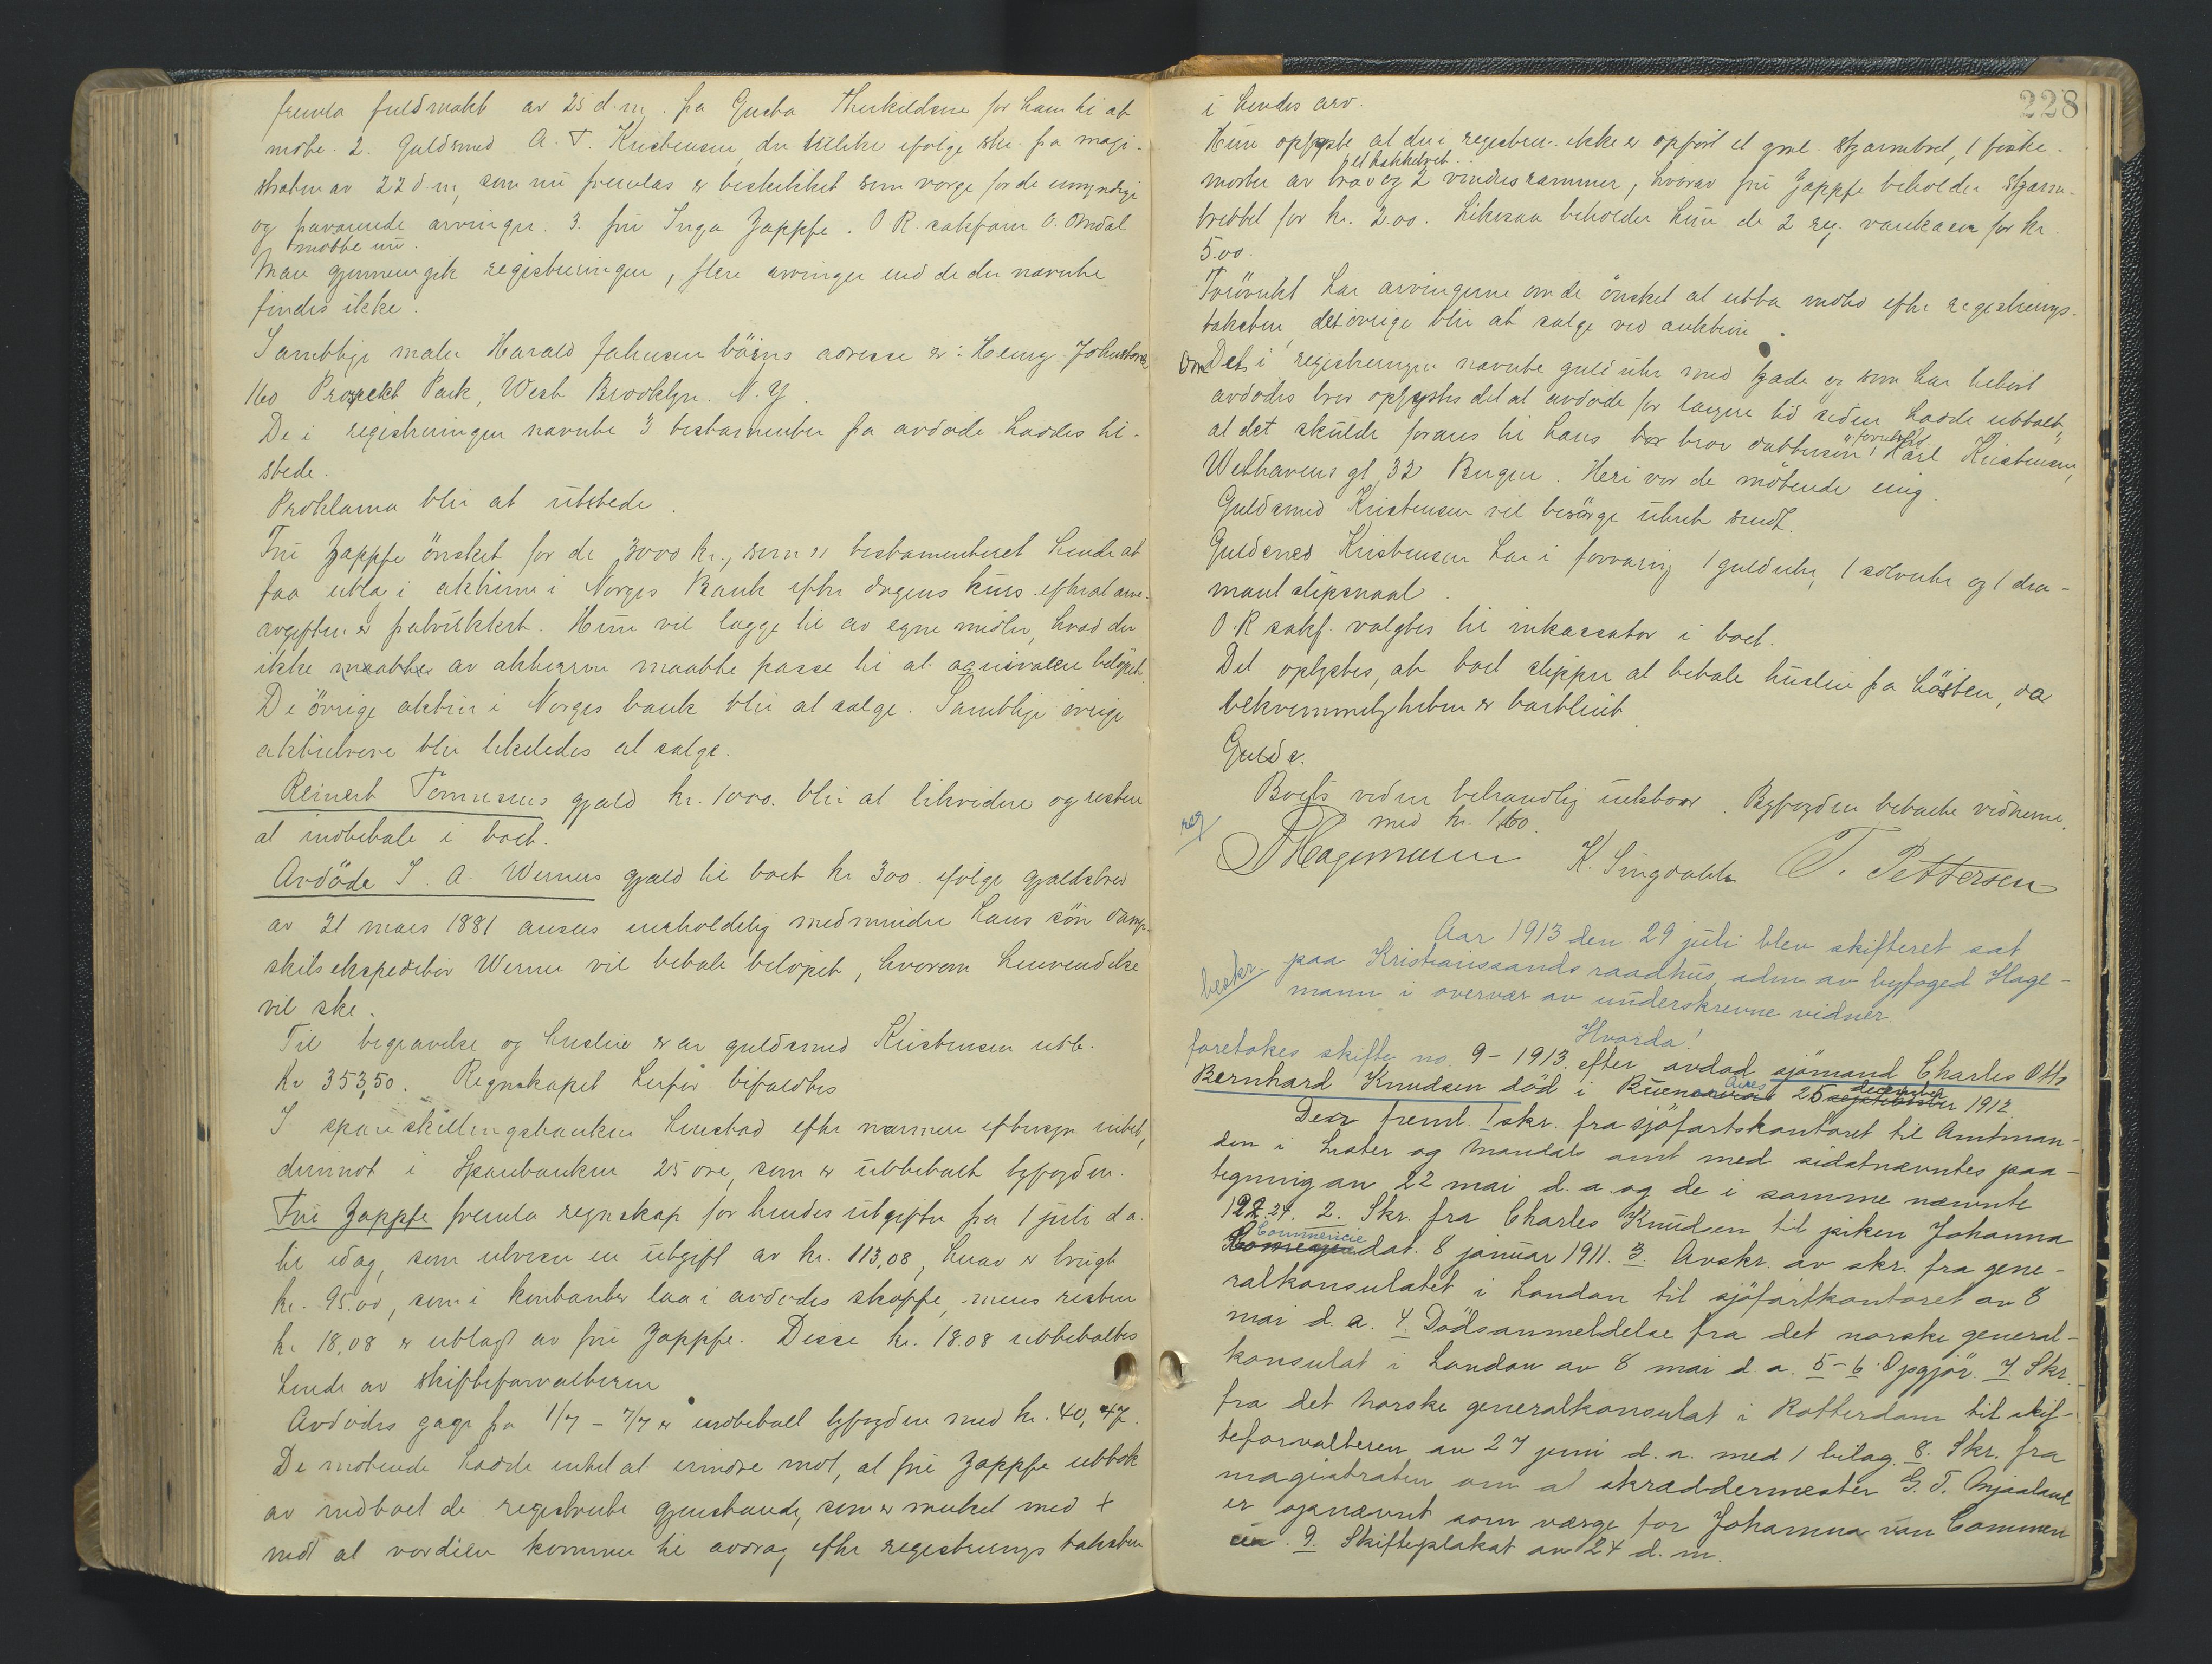 fremla fuldmakt av 25 d.m. fra Gusta Therkildsen for ham til at
møte. 2. Guldsmed A. T. Kristensen, der tillike ifølge skr. fra magi-
straten av 22 d.m, som nu fremlas er beskikket som værge for de umyndige
og fraværende arvinger. 3. fru Inga Zappfe. O.R. sakfører O. Omdal
møtte nu.
Man gjennemgik registreringen, flere arvinger end de der nævnte
findes ikke.
Samtlige maler Harald Johnsen børns adresse er: Henry Johnstone
160 Prospekt Park, West Brooklyn. N.Y.
De i registreringen nævnte 3 testamenter fra avdøde hadtes til-
stede.
Proklama blir at utstede.
Fru Zappfe ønsket for de 3000 kr., som er testamenteret hende at
faa utla i aktierne i Norges Bank efter dagens kurs efterat arve-
avgiften er fratrukket. Hun vil lægge til av egne midler, hvad der
ikke maatte av aktierne maatte passe til at æquivalere beløpet.
De øvrige aktier i Norges bank blir at sælge. Samtlige øvrige
aktiebreve blir likeledes at sælge.
Reinert Tønnesens gjæld kr. 1000. blir at likvidere og resten
at indbetale i boet.
Avdøde I. A. Werners gjæld til boet kr 300. ifølge gjældsbrev
av 21 mars 1881 ansees uerholdelig medmindre hans søn damp-
skibsekspeditør Werner vil betale beløpet, hvorom henvendelse
vil ske.
Til begravelse og husleie er av guldsmed Kristensen utb.
kr 353,50. Regnskapet herfor bifaldtes
I spareskillingsbanken henstod efter nærmere eftersyn intet,
derimot i Sparebanken 25 øre, som er utbetalt byfogden.
Fru Zappfe fremla regnskap for hendes utgifter fra 1 juli d.a.
til idag, som utviser en utgift av kr. 113,08, herav er brugt
kr. 95.00, som i kontanter laa i avdødes skuffe, mens resten
kr 18,08 er utlagt av fru Zappfe. Disse kr. 18.08 utbetaltes
hende av skifteforvalteren
Avdødes gage fra 1/7 - 7/7 er indbetalt byfogden med kr. 40,47.
De møtende hadde intet at erindre mot, at fru Zappfe uttok
av indboet de registrerte gjenstande, som er merket med +
mot at værdien kommer til avdrag efter registrerings taksten
228
i hendes arv.
Hun oplyste at der i registrer. ikke er opført et gml. skjærmbret, 1 fiske-
et hakkebret
morter av træ og 2 vindusrammer, hvorav fru Zappfe beholder skjærm-
brettet for kr. 2.00. Likesaa beholder hun de 2 reg. vaskekaser for kr.
5.00.
Forøvrikt har arvingerne om de ønsket at utta indbo efter registrerings-
taksten, det øvrige blir at sælge ved auktion.
Om Det i registreringen nævnte guld uhr med kjæde og som har tilhørt
avdødes bror oplystes det at avdøde for længere tid siden hadde uttalt,
at det skulde foræres til hans bror dattersøn Karl Kristensen,
Welhavens gt 32 Bergen. Heri var de møtende enig.
Guldsmed Kristensen vil besørge uhret sendt.
Guldsmed Kristensen har i forvaring 1 gulduhr, 1 sølvuhr og 1 dia-
mant slipsnaal.
O.R sakf. valgtes til inkassator i boet.
Det oplystes, at boet slipper at betale husleie fra høsten, da
bekvemmeligheten er bortleiet.
Gulds.
Boets videre behandling utstaar. Byfogden betalte vidnerne
med kr. 1,60.
reg
Hagemann K. Lingdahl T. Pettersen
Aar 1913 den 29 juli blev skifteret sat
beskr. paa Kristianssands raadhus, adm av byfoged Hage-
mann i overvær av underskrevne vidner.
Hvorda!
foretokes skifte no. 9 - 1913 efter avdød sjömand Charles Otto
Bernhard Knudsen død i Buenos Aires 25 december 1912.
Der freml. 1 skr. fra sjöfartskontoret til Amtman-
den i Lister og Mandals amt med sidstnævntes paa-
tegning av 22 mai d. a. og de i samme nævnte
122.24. 2. Skr. fra Charles Knudsen til piken Johanna
Commencie dat. 8 januar 1911. 3. Avskr. av skr. fra gene-
ralkonsulatet i London til sjöfartkontoret av 8
mai d. a. 4. Dödsanmeldelse fra det norske general-
konsulat i London av 8 mai d. a. 5-6 Opgjör. 7. Skr.
fra det norske generalkonsulat i Rotterdam til skif-
teforvalteren av 27 juni d. a. med 1 bilag. 8. Skr. fra
magistraten om at skræddermester G. T. Mjaaland
er opnævnt som værge for Johanna van Commen
cie. 9. Skifteplakat av 24 d. m.